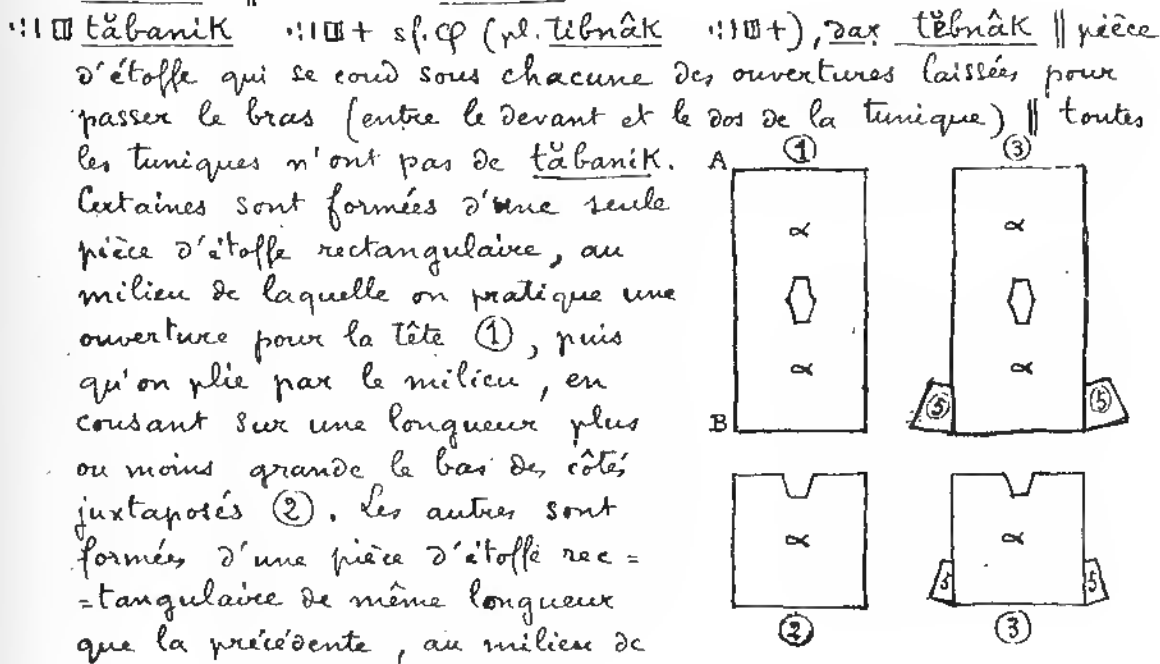 ⁖ⵏⵀ tăbaniK ⁖ⵏⵀ+ sf. φ (pl. tibnâk ⁖ⵏⵀ+), daγ tĕbnâk || pièce
d'étoffe qui se coud sous chacune des ouvertures laissées pour
passer le bras (entre le devant et le dos de la tunique) || toutes
les tuniques n'ont pas de tăbaniK.
Certaines sont formées d'une seule
pièce d'étoffe rectangulaire, au
milieu de laquelle on pratique une
ouverture pour la tête ①, puis
qu'on plie par le milieu, en
cousant sur une longueur plus
ou moins grande le bas des côtés
juxtaposés ②. Les autres sont
formées d'une pièce d'étoffe rec=
=tangulaire de même longueur
que la précédente, au milieu de
① ③
A
α α
α α
⑤ ⑤
B
α α
5 5
② ③